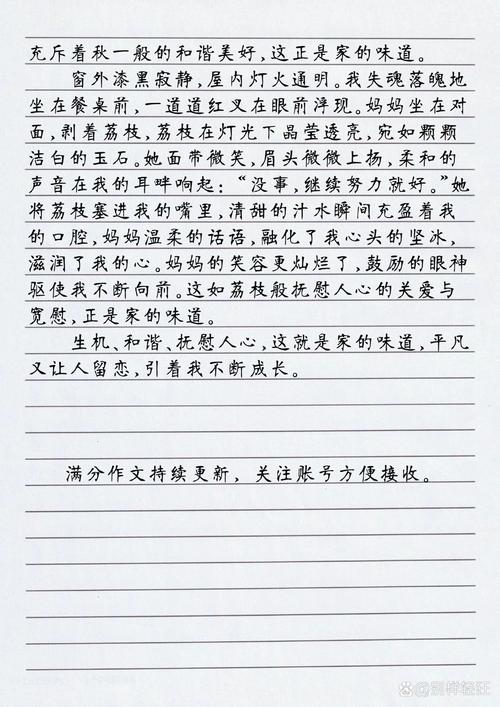 充斥着秋一般的和谐美好,这正是家的味道。
窗外漆黑寂静,屋内灯火通明。我失魂落魄地
坐在餐桌前,一道道红叉在眼前浮现。妈妈坐在对
面,剥着荔枝,荔枝在灯光下晶莹透亮,宛如颗颗
洁白的玉石。她面带微笑,眉头微微上扬,柔和的
声音在我的耳畔响起:“没事,继续努力就好。”她
将荔枝塞进我的嘴里,清甜的汁水瞬间充盈着我
的口腔,妈妈温柔的话语,融化了我心头的坚冰,
滋润了我的心。妈妈的笑容更灿烂了,鼓励的眼神
驱使我不断向前。这如荔枝般抚慰人心的关爱与
宽慰,正是家的味道。
生机、和谐、抚慰人心,这就是家的味道,平凡
又让人留恋,引着我不断成长。
满分作文持续更新,关注账号方便接收。
@别样轻旺